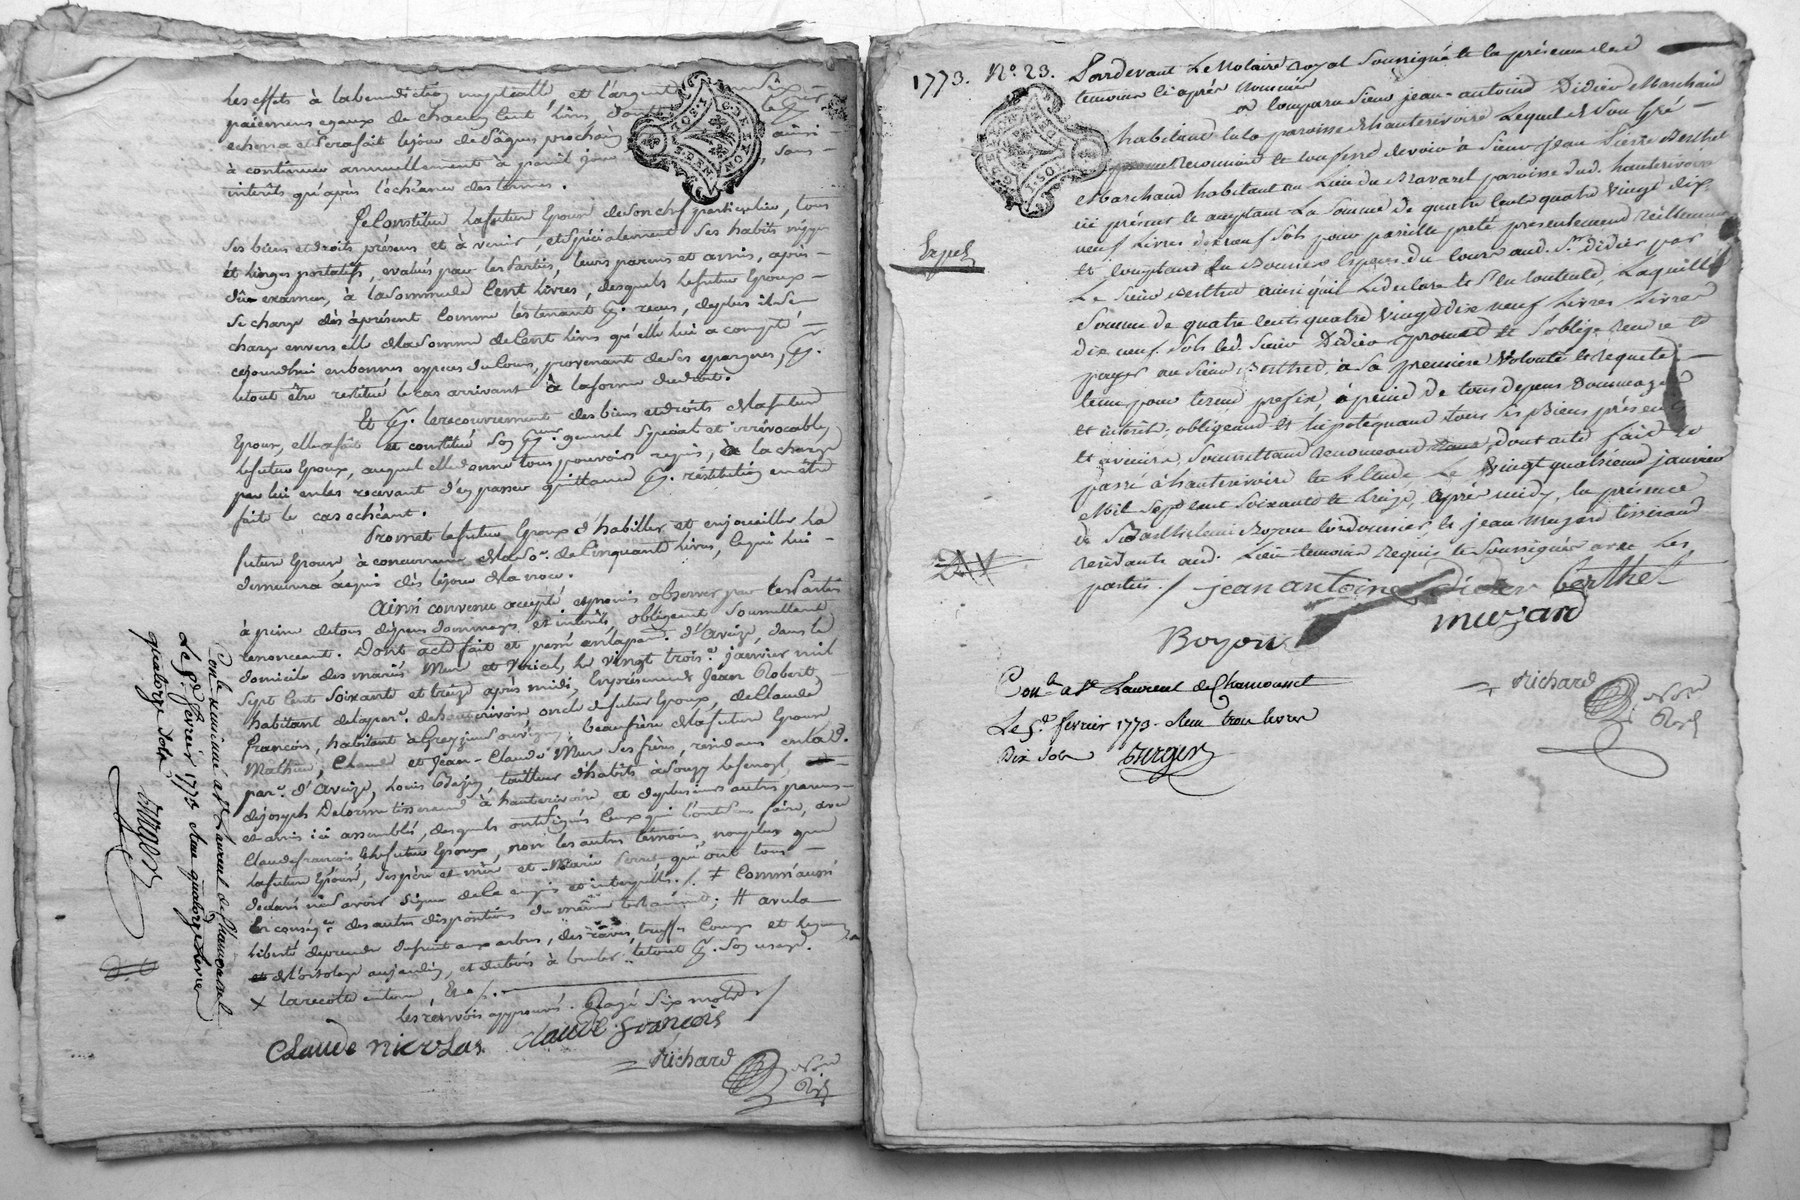 les effets à la benediction nuptialle, et l'argent
payemens egaux de chacun cent livres dont
echerra et sera fait le jour de Pâques prochain ainsi
à continuer annuellement à pareil jour sans
interêts qu'après l'échéance des termes.
Se Constitue la future Epouse de son chef particulier, tous
ses biens et droits présens et à venir, et spécialement ses habits nippes
et linges portatifs, evalués par les parties, leurs parens et amis, après
dûe examen, à la somme de Cent livres, desquels le futur Epoux
se charge dès à présent comme les tenant reçus, de plus il se
charge envers elle de la somme de Cent livres qu'elle lui a compté
cejourdhui en bonnes especes du Cours, provenant de ses epargnes,
le tout être restitué le cas arrivant à la forme du droit.
Et le recouvrement des biens et droits de la future
Epouse, elle a fait et constitué son general special et irrévocable
le futur Epoux, auquel elle donne tous pouvoirs requis, à la charge
par lui en les recevant d'en passer quittance restitution en être
faite le cas echéant.
Promet le futur Epoux d'habiller et enjoailler la
future Epouse, à concurrence de la so. de Cinquante livres, ce qui lui
demeurera acquis dès le jour de la noce.
Ainsi convenu accepté et promis observer par les parties
à peine de tous dépens dommages et interêts, obligeant soumettant
renonceant. Dont acte fait et passé en la par. d'Aveize, dans le
domicile des mariés Mure et Vericel, le vingt trois.e janvier mil
sept cent soixante et treize après midi, En présence de Jean Robert
habitant de la par.e de hauterivoire, oncle du futur Epoux, de Claude
François, habitant à Grezieu beaufrère de la future Epouse
Mathieu, Claude et Jean-Claude Mure ses frères, résidans en lad.
par.e d'Aveize, Louis tailleur d'habits à Souzy
de joseph Delorme tisserand à hauterivoire et de plusieurs autres parens
et amis ici assemblés, desquels ont signés ceux qui l'ont sçu faire, avec
Claude françois le futur Epoux, non les autres témoins, non plus que
la future Epouse, ses père et mère et Marie qui ont tous
declaré ne savoir signer de ce enquis et interpellés ./. ‡ Comm'aussi
En conséq. des autres dispositions du même testament; # avec la
liberté de prendre du fruit aux arbres, des raves, truffes Courges et legumes
et de l'ortolage au jardin, et du bois à bruler le tout son usage.
× la récolte
les renvois approuvés. Rayé six mots
Claude nicolas Claude françois
Richard
Con.lé la minutte a St Laurent de Chamousset
Le 5.e fevrier 1773 Reçu quatorze livres
quatorze sols
1773. N.o 23. Pardevant Le Notaire royal soussigné & la présence des
temoins ci après nommés
a Comparu Sieur jean-antoine Didier Marchand
habitant la paroisse d'hauterivoire Lequel de son gré
reconnoit & confesse devoir à Sieur jean Pierre Berthet
Marchand habitant au Lieu du Bravard paroisse dud. hauterivoire
ici présent & acceptant La Somme de quatre cents quatre vingt dix
neuf Livres dix neuf sols pour pareille preté presentement réellement
Exped
& comptant En bonnes especes du cours aud. Sr Didier par
Le Sieur Berthet ainsi qu'il le declare & s'en contente, Laquelle
Somme de quatre cents quatre vingt dix neuf Livres Livres
dix neuf sols led. Sieur Didier promet & s'oblige rendre &
payer au Sieur Berthet, à sa premiere volonté & requete
à peine de tous depens dommages
et interêts, obligeant & hipotéquant tous ses Biens présents
et avenirs, soumettant renonceant dont acte fait &
passé à hauterivoire en l'Etude Le vingt quatrieme janvier
Mil Sept cent Soixante & treize, après midy, En présence
de Barthelemi Boyon Cordonnier & jean Muzard tisserand
résidants aud. Lieu temoins requis & soussignés avec les
parties ./. jean antoine didier berthet
muzard
Boyon
Richard
Con.lé a St Laurent de Chamousset
Le 5.e fevrier 1773. Reçu trois livres
Dix sols